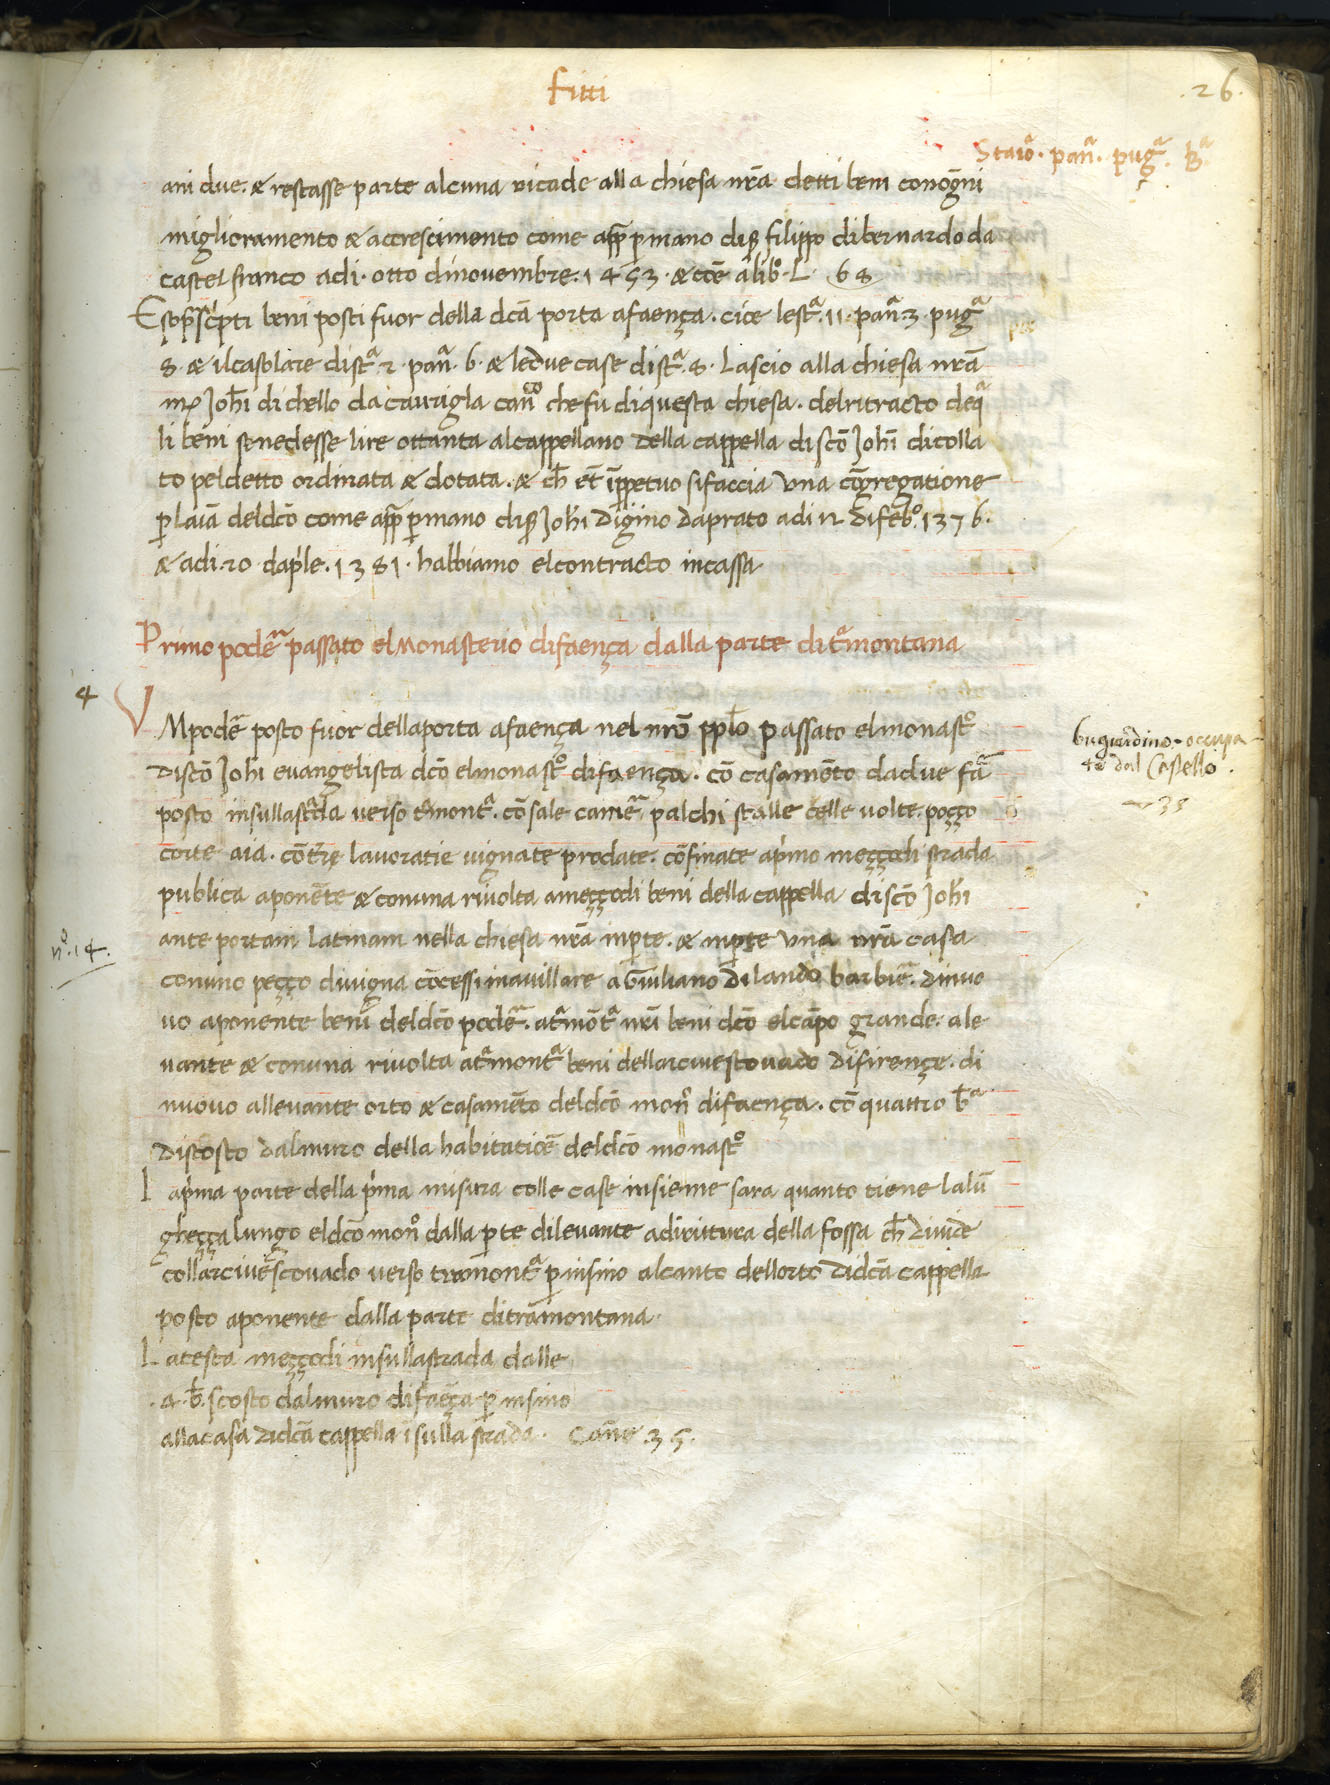 Fitti
.26.
Staiō. pañ. pug. B
ani due. & restasse parte alcuna ricade alla chiesa nrā detti beni conōgni
miglioramento & accrescimento come app̄ p mano di S filippo di bernardo da
castel franco adi. otto dinovembre. 1453. & allib. L. 68
E sop̄scripti beni posti fuor della dcā porta afaença. cioe le st. 11. pañ 3. pug
8. & il casolare di st. 2. pañ. 6. & ledue case di st. 8. Lascio alla chiesa nrā
Joh̄i di chello da cavrigla can che fu di questa chiesa. del ritracto de q
li beni se ne desse lire ottanta al cappellano della cappella di scō Joh̄i dicolla
to pel detto ordinata & dotata. & ch̄ et īppetuo si faccia una cōgregatione
p laīa deldcō come app̄ p mano di S Joh̄i Digino da prato adi 12 di feb. 1376.
& adi. 20. daprile. 1381. habbiamo el contracto in cassa
Primo podē passato el Monasterio di faença dalla parte di tmontana
4
VM podē posto fuor dellaporta afaença nel nrō ppl̄o passato elmonast
Discō Joh̄i evangelista dcō elmonast difaença. cō casamēto dadue fā
bugiardino. occupa
4 dal Castello.
38
posto insullastrada verso tmont. cō sale camē palchi stalle celle volte. poçço
corte aia. cō lavoratie vignate prodate. cōfinate aprimo meççodi strada
publica aponēte & conuna rivolta ameççodi beni della cappella di scō Joh̄i
ante portam latinam nella chiesa nrā inpte. & inpte una nrā casa
nº. 14.
conuno peçço divigna cōcessi inavillare a Giuliano Di lando barbiē. dinuo
vo aponente beni deldcō podē. atmōt nrī beni dcō elcāpo grande. ale
vante & conuna rivolta atmont beni dellarcivescovado Difirençe. di
nuovo allevante orto & casamēto deldcō moñ difaença. cō quattro b
Discosto dalmuro della habitatiōe deldcō monast
L aprima parte della prima misura colle case insieme sara quanto tiene lalū
gheçça lungo eldcō moñ dalla pte dilevante adirittura della fossa ch̄ divide
collarcivescovado verso tramont p insino alcanto dellorto Didcā cappella
posto aponente dalla parte ditrāmontana.
L atesta meççodi insullastrada dalle
.4. b. scosto dalmuro di faēça p insino
allacasa Didcā cappella ī sulla strada. Cañe .35.